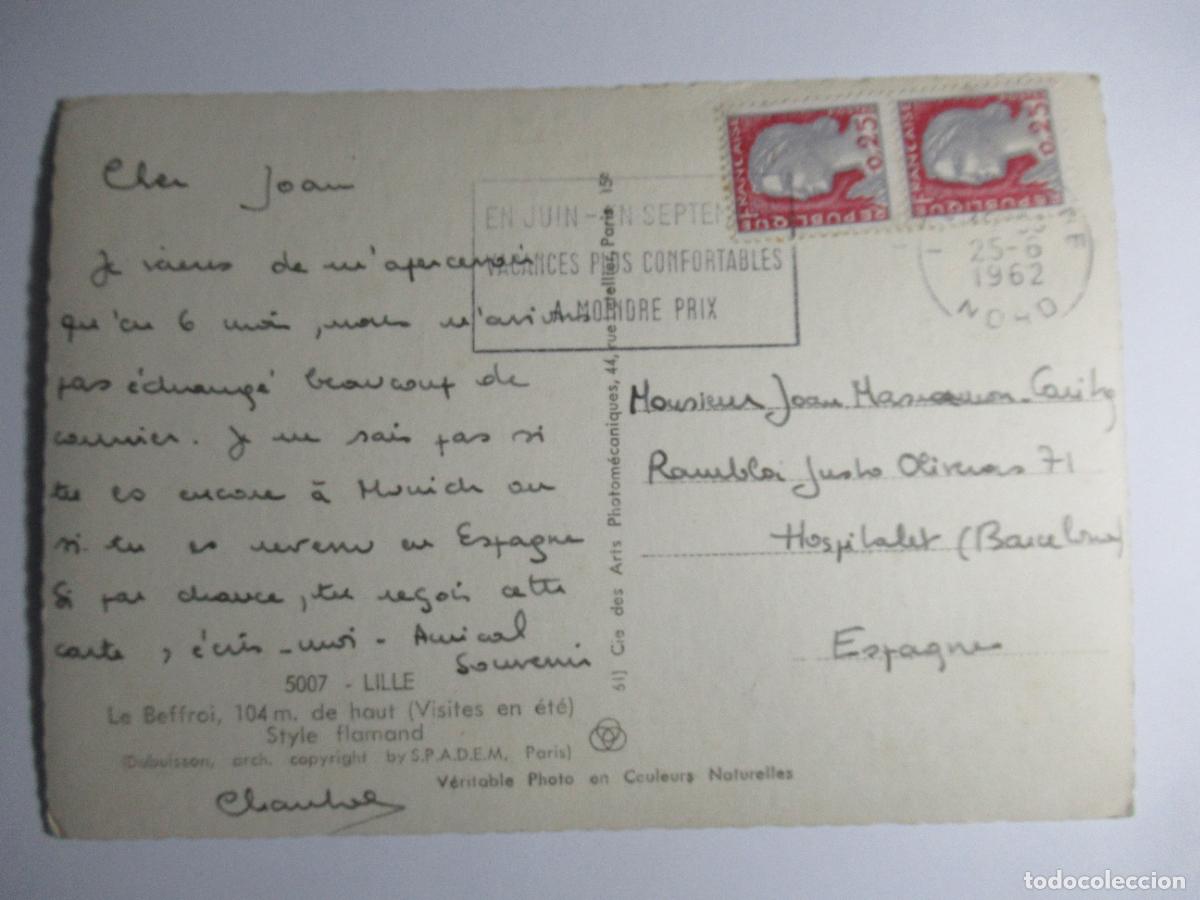 Cher Joan
Je viens de m'apercevoir
qu'en 6 mois, nous n'avions
pas échangé beaucoup de
courrier. Je ne sais pas si
tu es encore à Munich ou
si tu es revenu en Espagne
Si par chance, tu reçois cette
carte, écris-moi - Amical
Souvenir
5007 - LILLE
Le Beffroi, 104 m. de haut (Visites en été)
Style flamand
(Dubuisson, arch. copyright by S.P.A.D.E.M, Paris)
Véritable Photo en Couleurs Naturelles
61] Cie des Arts Photomécaniques, 44, rue Letellier, Paris 15e
EN JUIN - EN SEPTEM
VACANCES PLUS CONFORTABLES
A MOINDRE PRIX
REPUBLIQUE FRANÇAISE
0,25F
REPUBLIQUE FRANÇAISE
0,25F
25-6
1962
NORD
Monsieur Joan
Rambla Justo Oliveras 71
Hospitalet (Barcelona)
Espagne
todocoleccion